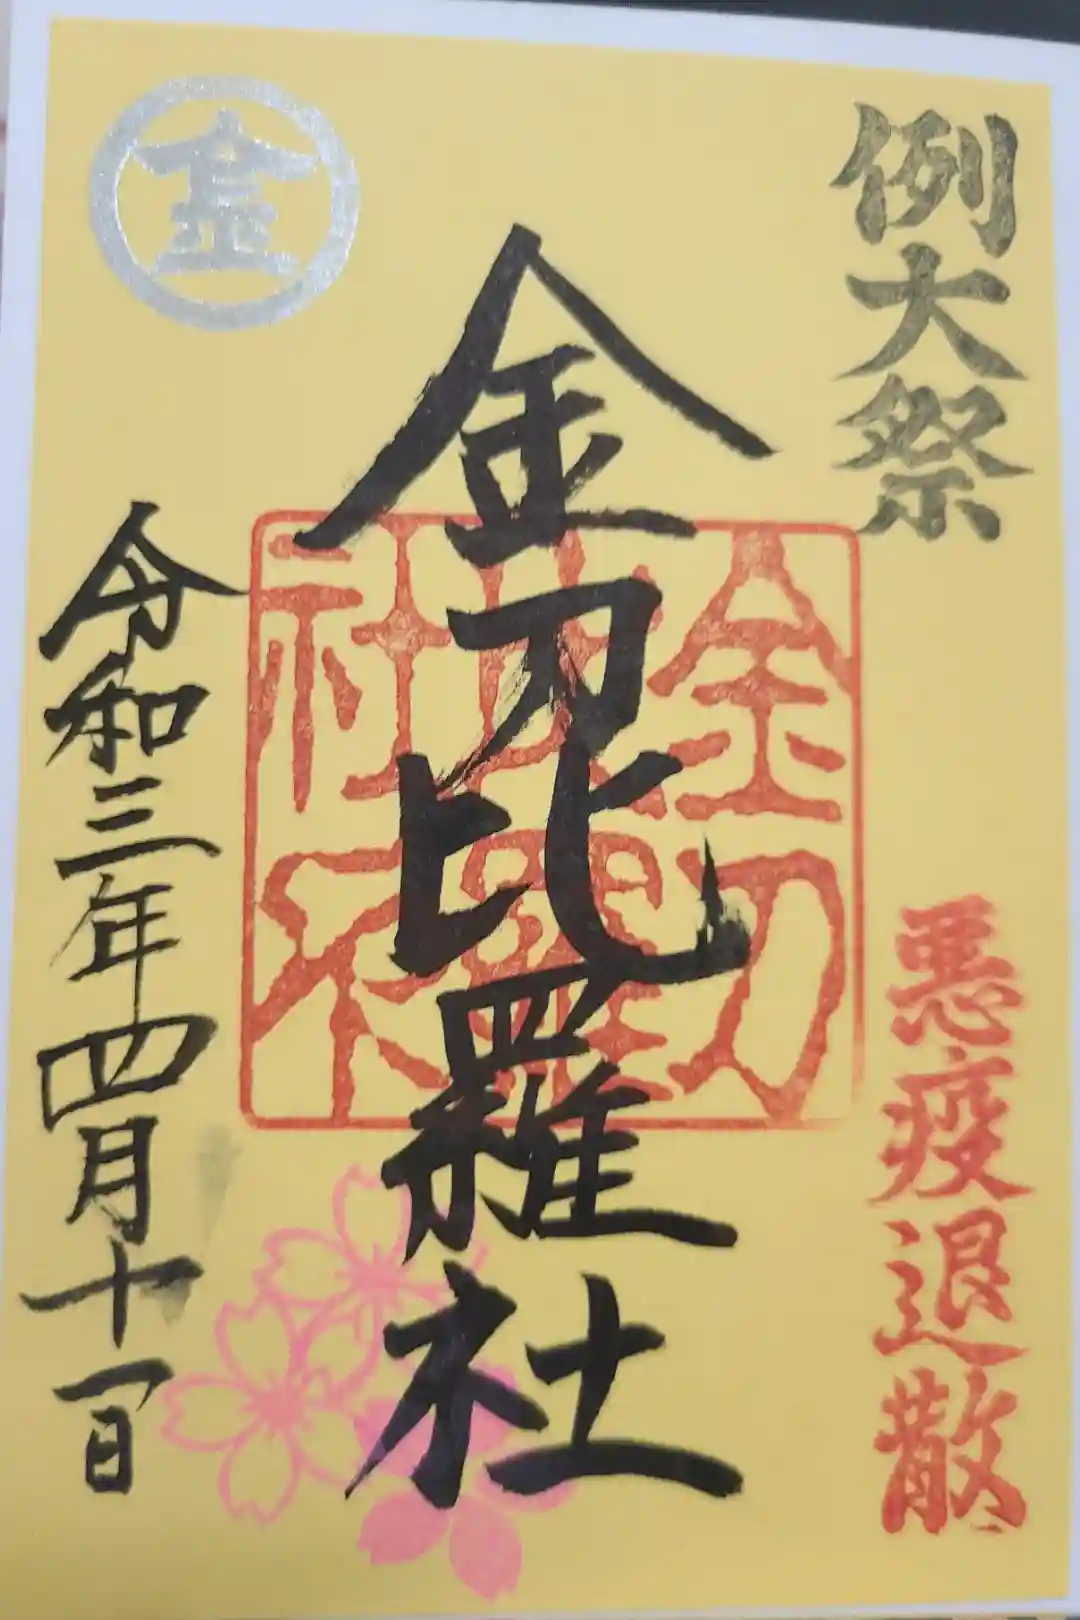 例大祭
悪疫退散
金刀比羅社
金刀
比羅
社
金
令和三年四月十一日